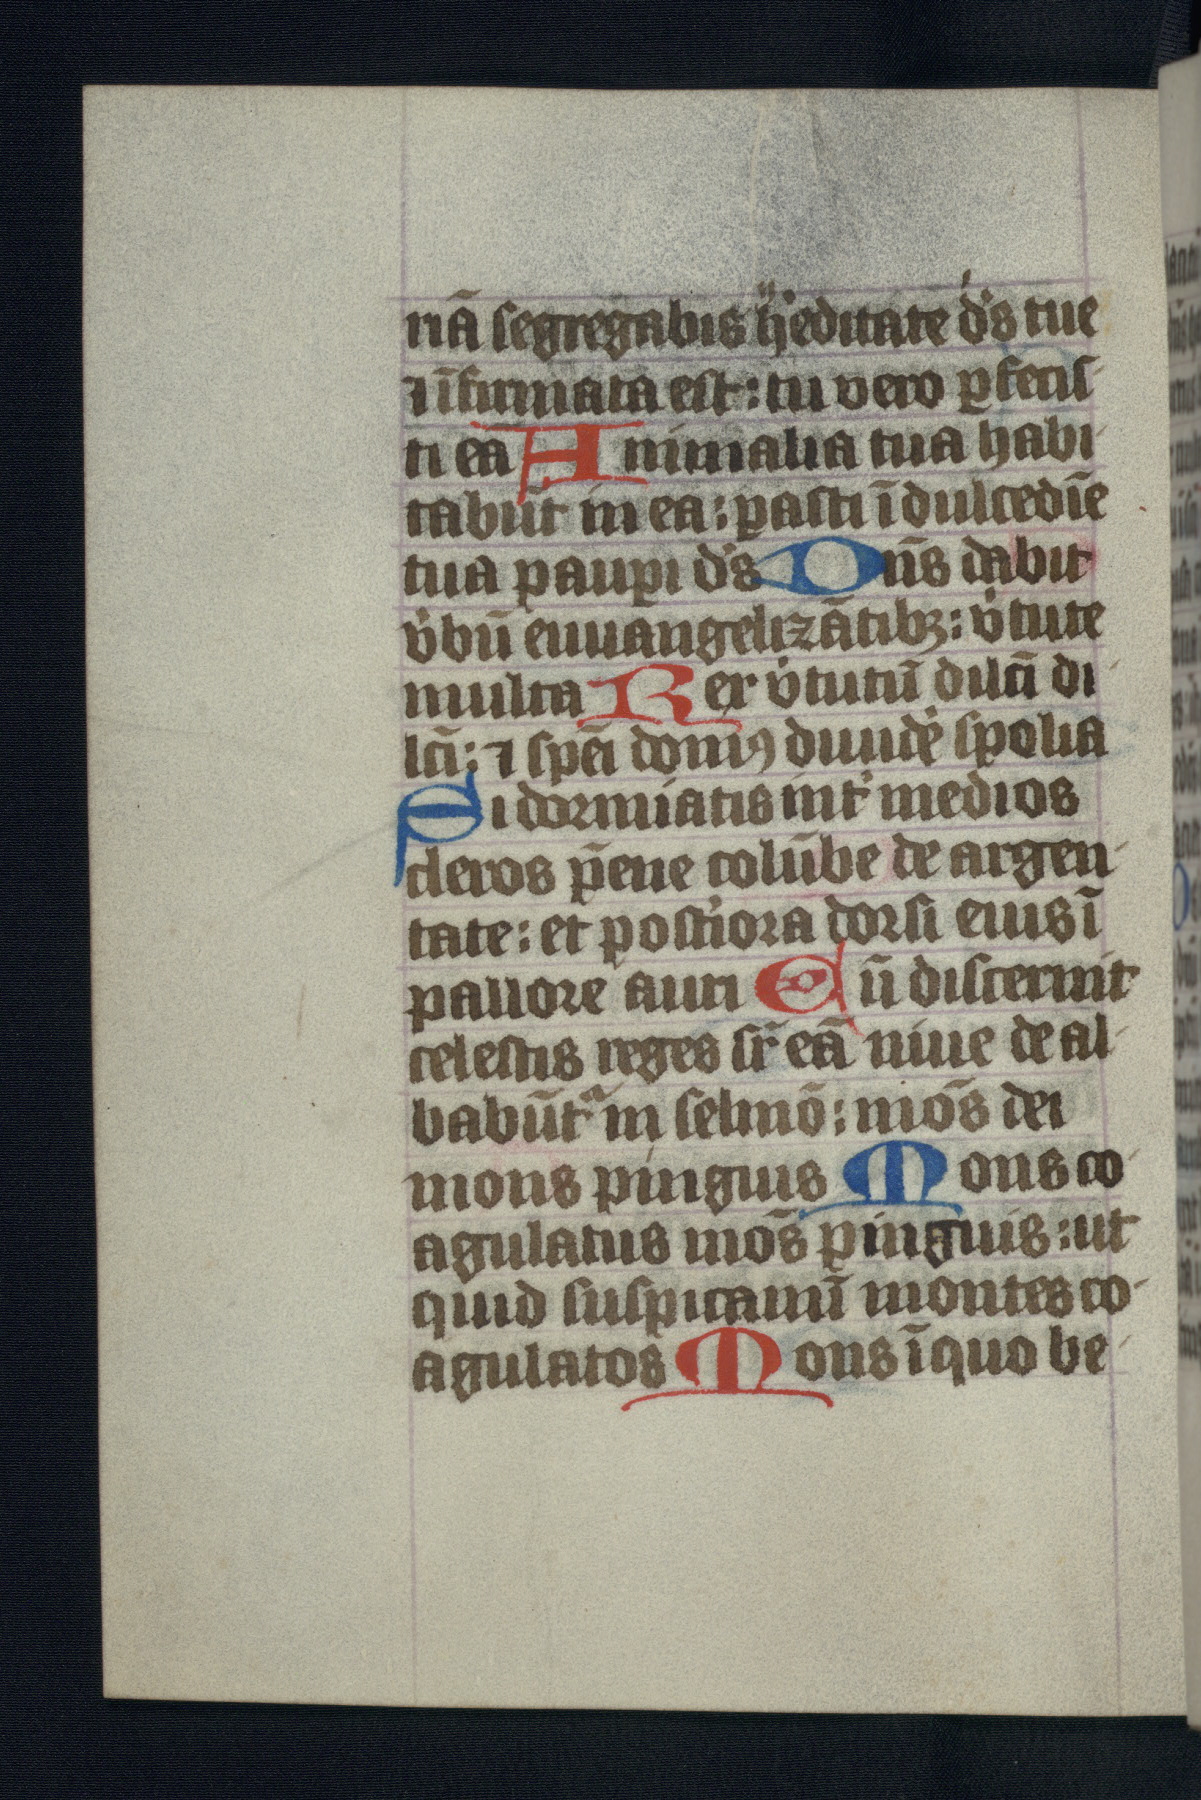 riā segregabis h̄editate d̓s tue
⁊ īfirmata est: tu vero ꝑfecis
ti eā Animalia tua habi
tabūt in ea: pasti ī dulcedīe
tua pauꝑi d̓s Dn̄s dabit
v̓bū euuangelizātibꝫ: v̓tute
multa Rex v̓tutū dilc̄i di
lc̄i: ⁊ spēi domꝰ diuid̓e spolia
Si dormiatis int̓ medios
cleros pēne colūbe de argen
tate: et post̓iora dorsi eius ī
pallore auri Dū discernit
celestis reges sr̄ eā niue de al
babūtᷓ in selmō: mōs dei
mons pinguis Mons co
agulatus mōs pinguis: ut
quid suspicamī montes co
agulatos Mons ī quo be